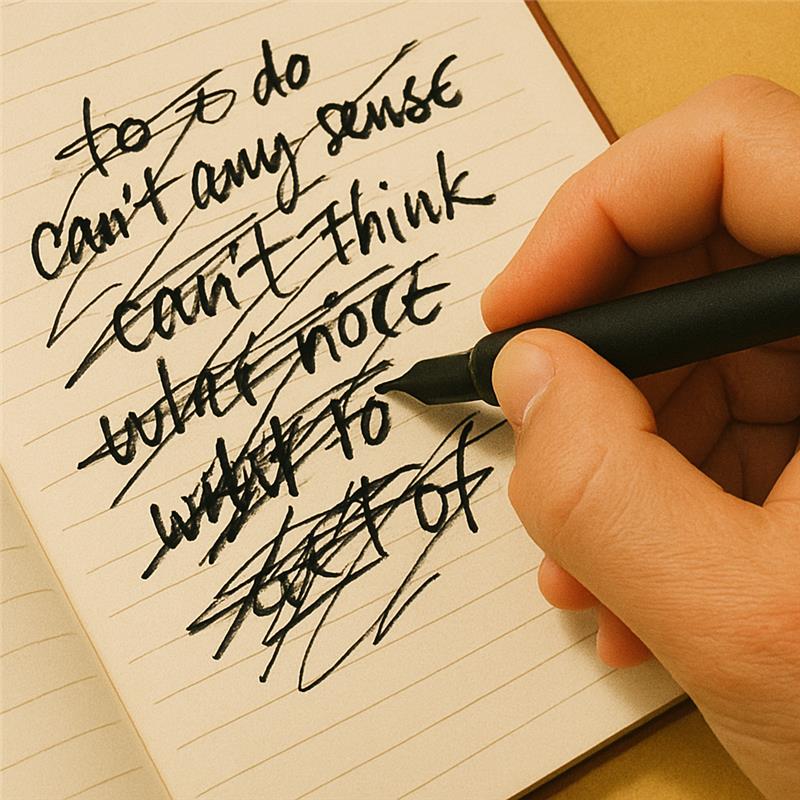 to to do
can't any sense
can't think
what
what to
of